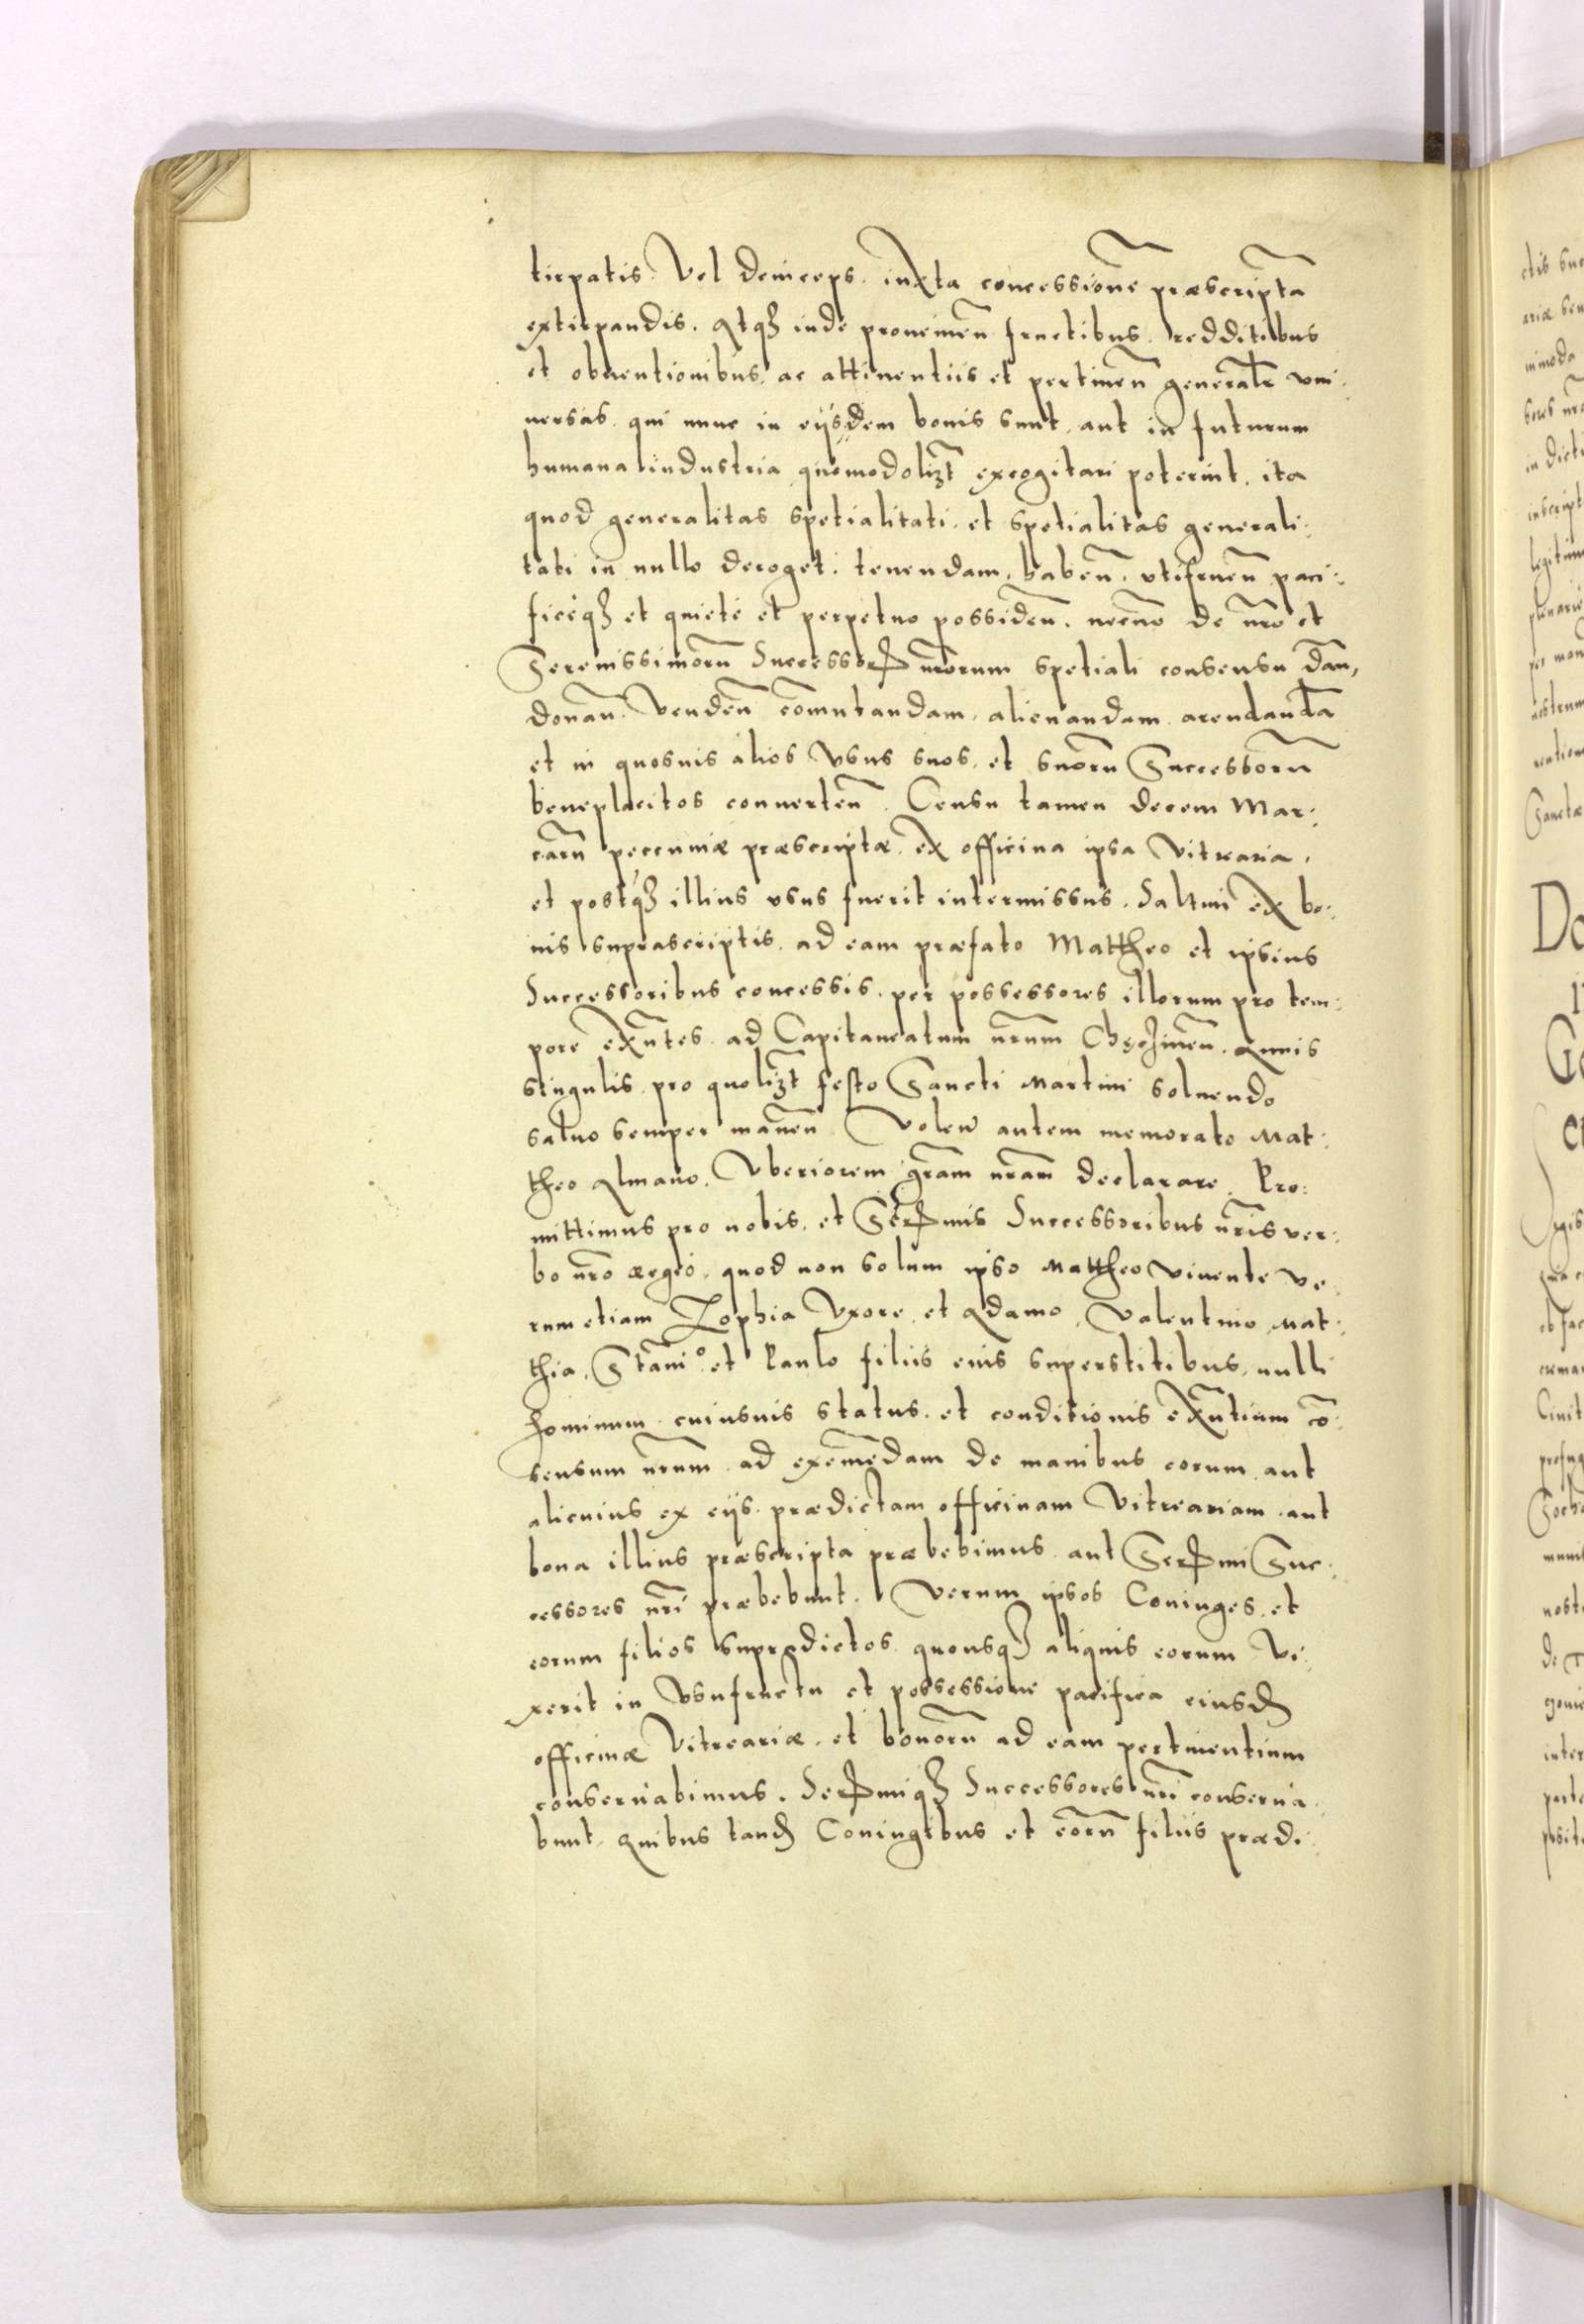 tirpatis. Vel deinceps. iuxta concessionẽ præscriptã
extirpandis. Atq₃ inde proueineñ fructibus. redditibus
et obuentionibus. ac attinentiis et pertineñ generalr̃ vni:
uersis. qui nunc in eijsdem bonis sunt. aut in futurum
humana industria quomodoliꝫt excogitari poterint. ita
quod generalitas spetialitati. et spetialitas generali:
tati in nullo deroget. tenendam. habeñ. vtifrueñ paci:
ficeq₃ et quietè et perpetuo possideñ. necno de nr̃o et
Serenissimorũ Successorꝝ nr̃orum spetiali consensu dañ,
donañ. Vendeñ cõmutandam. alienandam. arendandã
et in quosuis alios Vsus suos. et suorũ Successorũ
beneplacitos conuerteñ. Censu tamen decem Mar:
carũ peccuniæ præscriptæ. ex officina ipsa Vitrearia.
et postq₃ illius vsus fuerit intermissus. Saltim ex bo:
nis suprascriptis. ad eam præfato Mattheo et ipsius
Successoribus concessis. per possessores illorum pro tem:
pore exñtes. ad Capitaneatum nr̃um Chęczineñ. Annis
singulis. pro quoliꝫt festo Sancti Martini soluendo
saluo semper maneñ. Volen autem memorato Mat:
theo Almano. Vberiorem gr̃am nr̃am declarare. Pro:
mittimus pro nobis. et Serꝝmis Successoribus nr̃is ver:
bo nr̃o ręgio. quod non solum ipso Mattheo viuente ve:
rum etiam Zophia Vxore. et Adamo, Valentino, Mat:
thia, Stãni° et Paulo filiis eius superstitibus, nulli
hominum. cuiusuis status. et conditionis exñtium cõ:
sensum nr̃um. ad eximẽdam de manibus eorum. aut
alicuius ex eijs. prædictam officinam Vitreariam. aut
bona illius præscripta præbebimus. aut Serꝝmi Suc:
cessores nr̃i præbebunt. Verum ipsos Coniuges. et
eorum filios supradictos. quousq₃ aliquis eorum vi:
xerit in Vsufructu et possessione pacifica eiusdẽ
officinæ Vitreariæ. et bonorũ ad eam pertinentium
conseruabimus. Serꝝmiq₃ Successores nr̃i conserua:
bunt. Quibus tandẽ Coniugibus et eorũ filiis prædi: